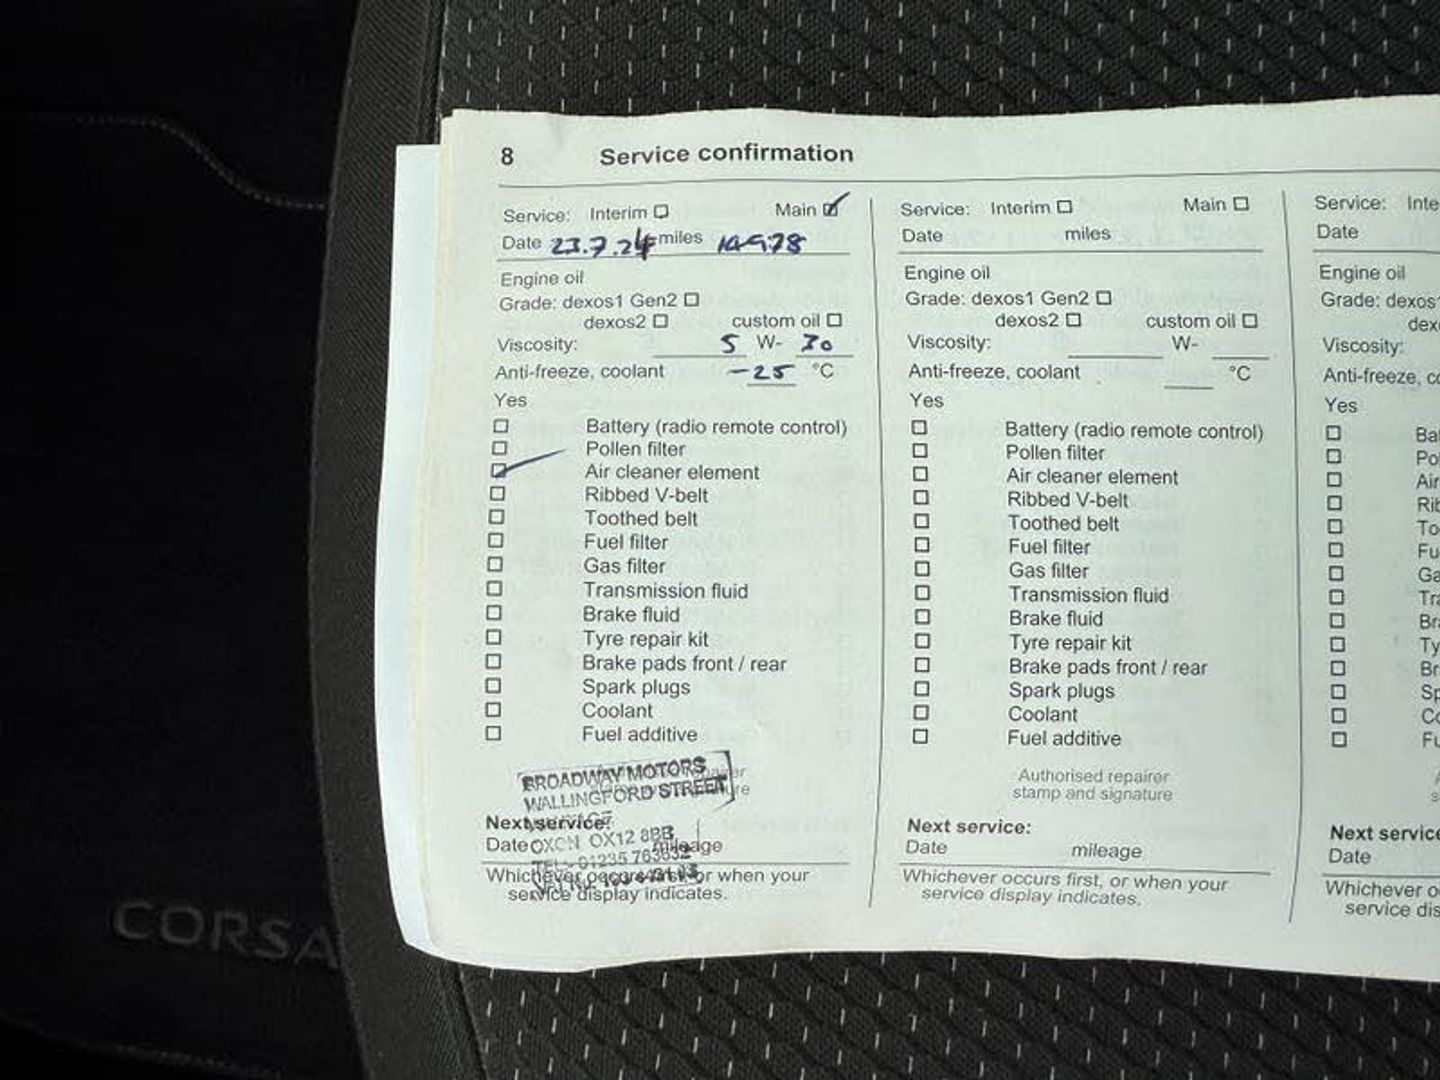 8 Service confirmation
Service: Interim Main
Date 23.7.24 miles 14978
Engine oil
Grade: dexos1 Gen2
dexos2 custom oil
Viscosity: 5 W- 30
Anti-freeze, coolant -25 °C
Yes
Battery (radio remote control)
Pollen filter
Air cleaner element
Ribbed V-belt
Toothed belt
Fuel filter
Gas filter
Transmission fluid
Brake fluid
Tyre repair kit
Brake pads front / rear
Spark plugs
Coolant
Fuel additive
BROADWAY MOTORS
WALLINGFORD STREET
Next service:
OXON OX12 8BB
Date mileage
TEL:- 01235 763632
Whichever occurs first, or when your
service display indicates.
Service: Interim Main
Date miles
Engine oil
Grade: dexos1 Gen2
dexos2 custom oil
Viscosity: W-
Anti-freeze, coolant °C
Yes
Battery (radio remote control)
Pollen filter
Air cleaner element
Ribbed V-belt
Toothed belt
Fuel filter
Gas filter
Transmission fluid
Brake fluid
Tyre repair kit
Brake pads front / rear
Spark plugs
Coolant
Fuel additive
Authorised repairer
stamp and signature
Next service:
Date mileage
Whichever occurs first, or when your
service display indicates.
Service: Inte
Date
Engine oil
Grade: dexos1
dex
Viscosity:
Anti-freeze, co
Yes
Bat
Pol
Air
Rib
To
Fu
Ga
Tra
Bra
Ty
Br
Sp
Co
Fu
Next service
Date
Whichever o
service dis
CORSA